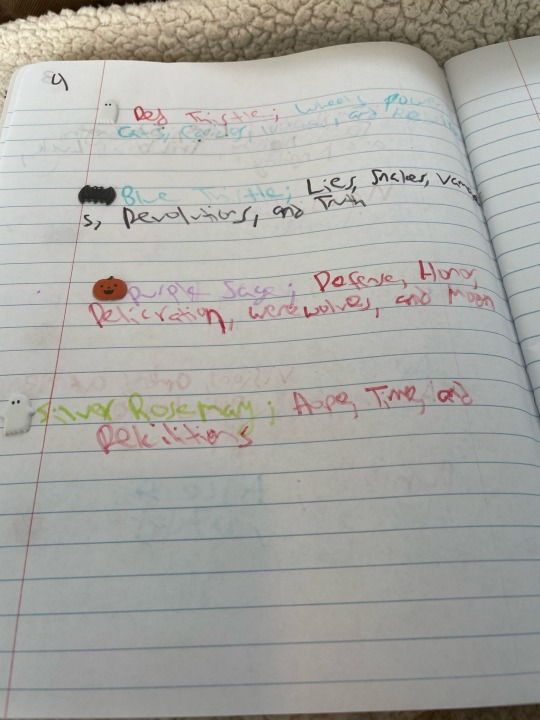 9
Red Thistle; Wheels, Power
Cards, and
Blue Thistle; Lies, Snakes, Vam
s, Revolutions, and Truth
Purple Sage; Defense, Honor,
Delicration, werewolves, and Moon
Silver Rosemary; Hope, Time, and
Rekilitions